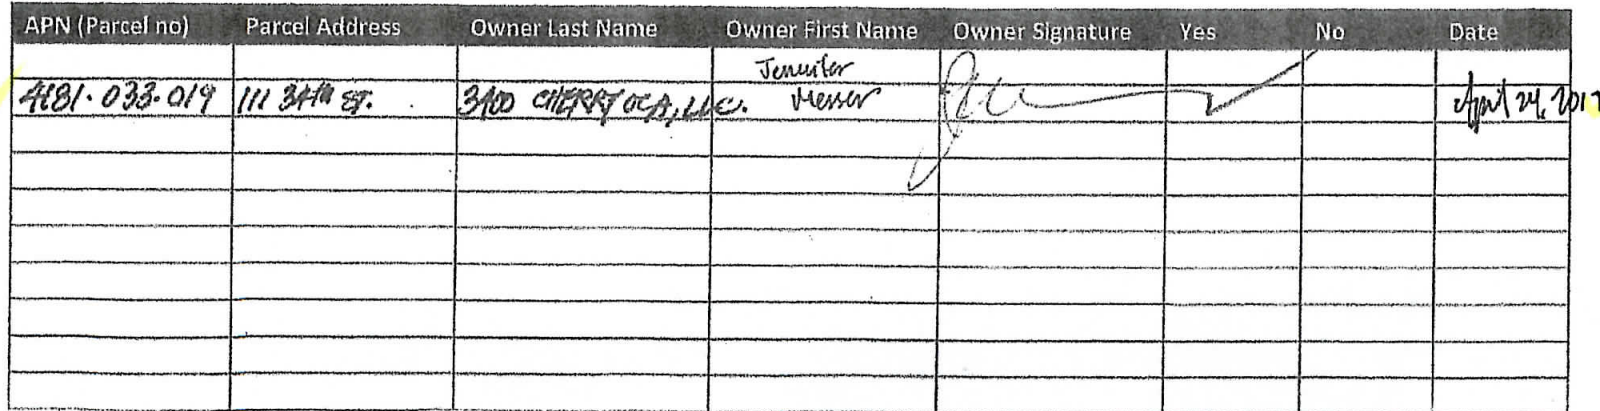 APN (Parcel no) Parcel Address Owner Last Name Owner First Name Owner Signature Yes No Date
Jennifer
4181-033-019 111 34th ST. 3400 CHERRY LLC. Messer April 24, 2017